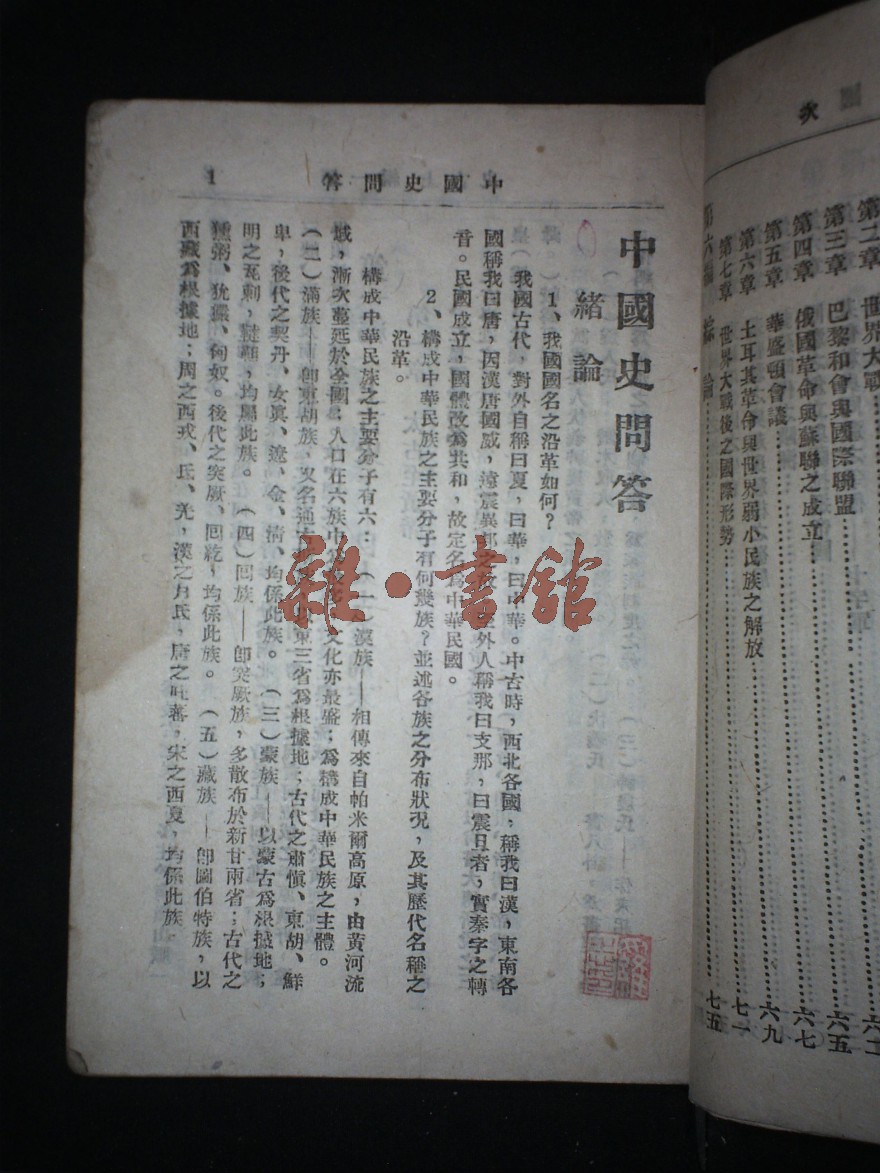 次
第二章 世界大戰
第三章 巴黎和會與國際聯盟
第四章 俄國革命與蘇聯之成立
第五章 華盛頓會議
第六章 土耳其革命與世界弱小民族之解放
第七章 世界大戰後之國際形勢
第六編
六五
六七
六九
七一
七五
中國史問答 1
中國史問答
緒論
1、我國國名之沿革如何?
我國古代,對外自稱曰夏,曰華,曰中華。中古時,西北各國,稱我曰漢,東南各
國稱我曰唐,因漢唐國威,遠震異邦之故。外人稱我曰支那,曰震旦者,實秦字之轉
音。民國成立,國體改為共和,故定名為中華民國。
2、構成中華民族之主要分子有何幾族?並述各族之分布狀況,及其歷代名稱之
沿革。
構成中華民族之主要分子有六:(一)漢族——相傳來自帕米爾高原,由黃河流
域,漸次蔓延於全國;人口在六族中文化亦最盛;為構成中華民族之主體。
(二)滿族——卽東胡族,又名通古東三省為根據地;古代之肅愼、東胡、鮮
卑,後代之契丹、女眞、遼、金、淸、均係此族。(三)蒙族——以蒙古為根據地;
明之瓦剌,韃靼,均屬此族。(四)回族——卽突厥族,多散布於新甘兩省;古代之
獯粥、玁狁、匈奴。後代之突厥、回紇,均係此族。(五)藏族——卽圖伯特族,以
西藏為根據地;周之西戎、氐、羌,漢之月氏,唐之吐蕃,宋之西夏,均係此族。
雜·書館